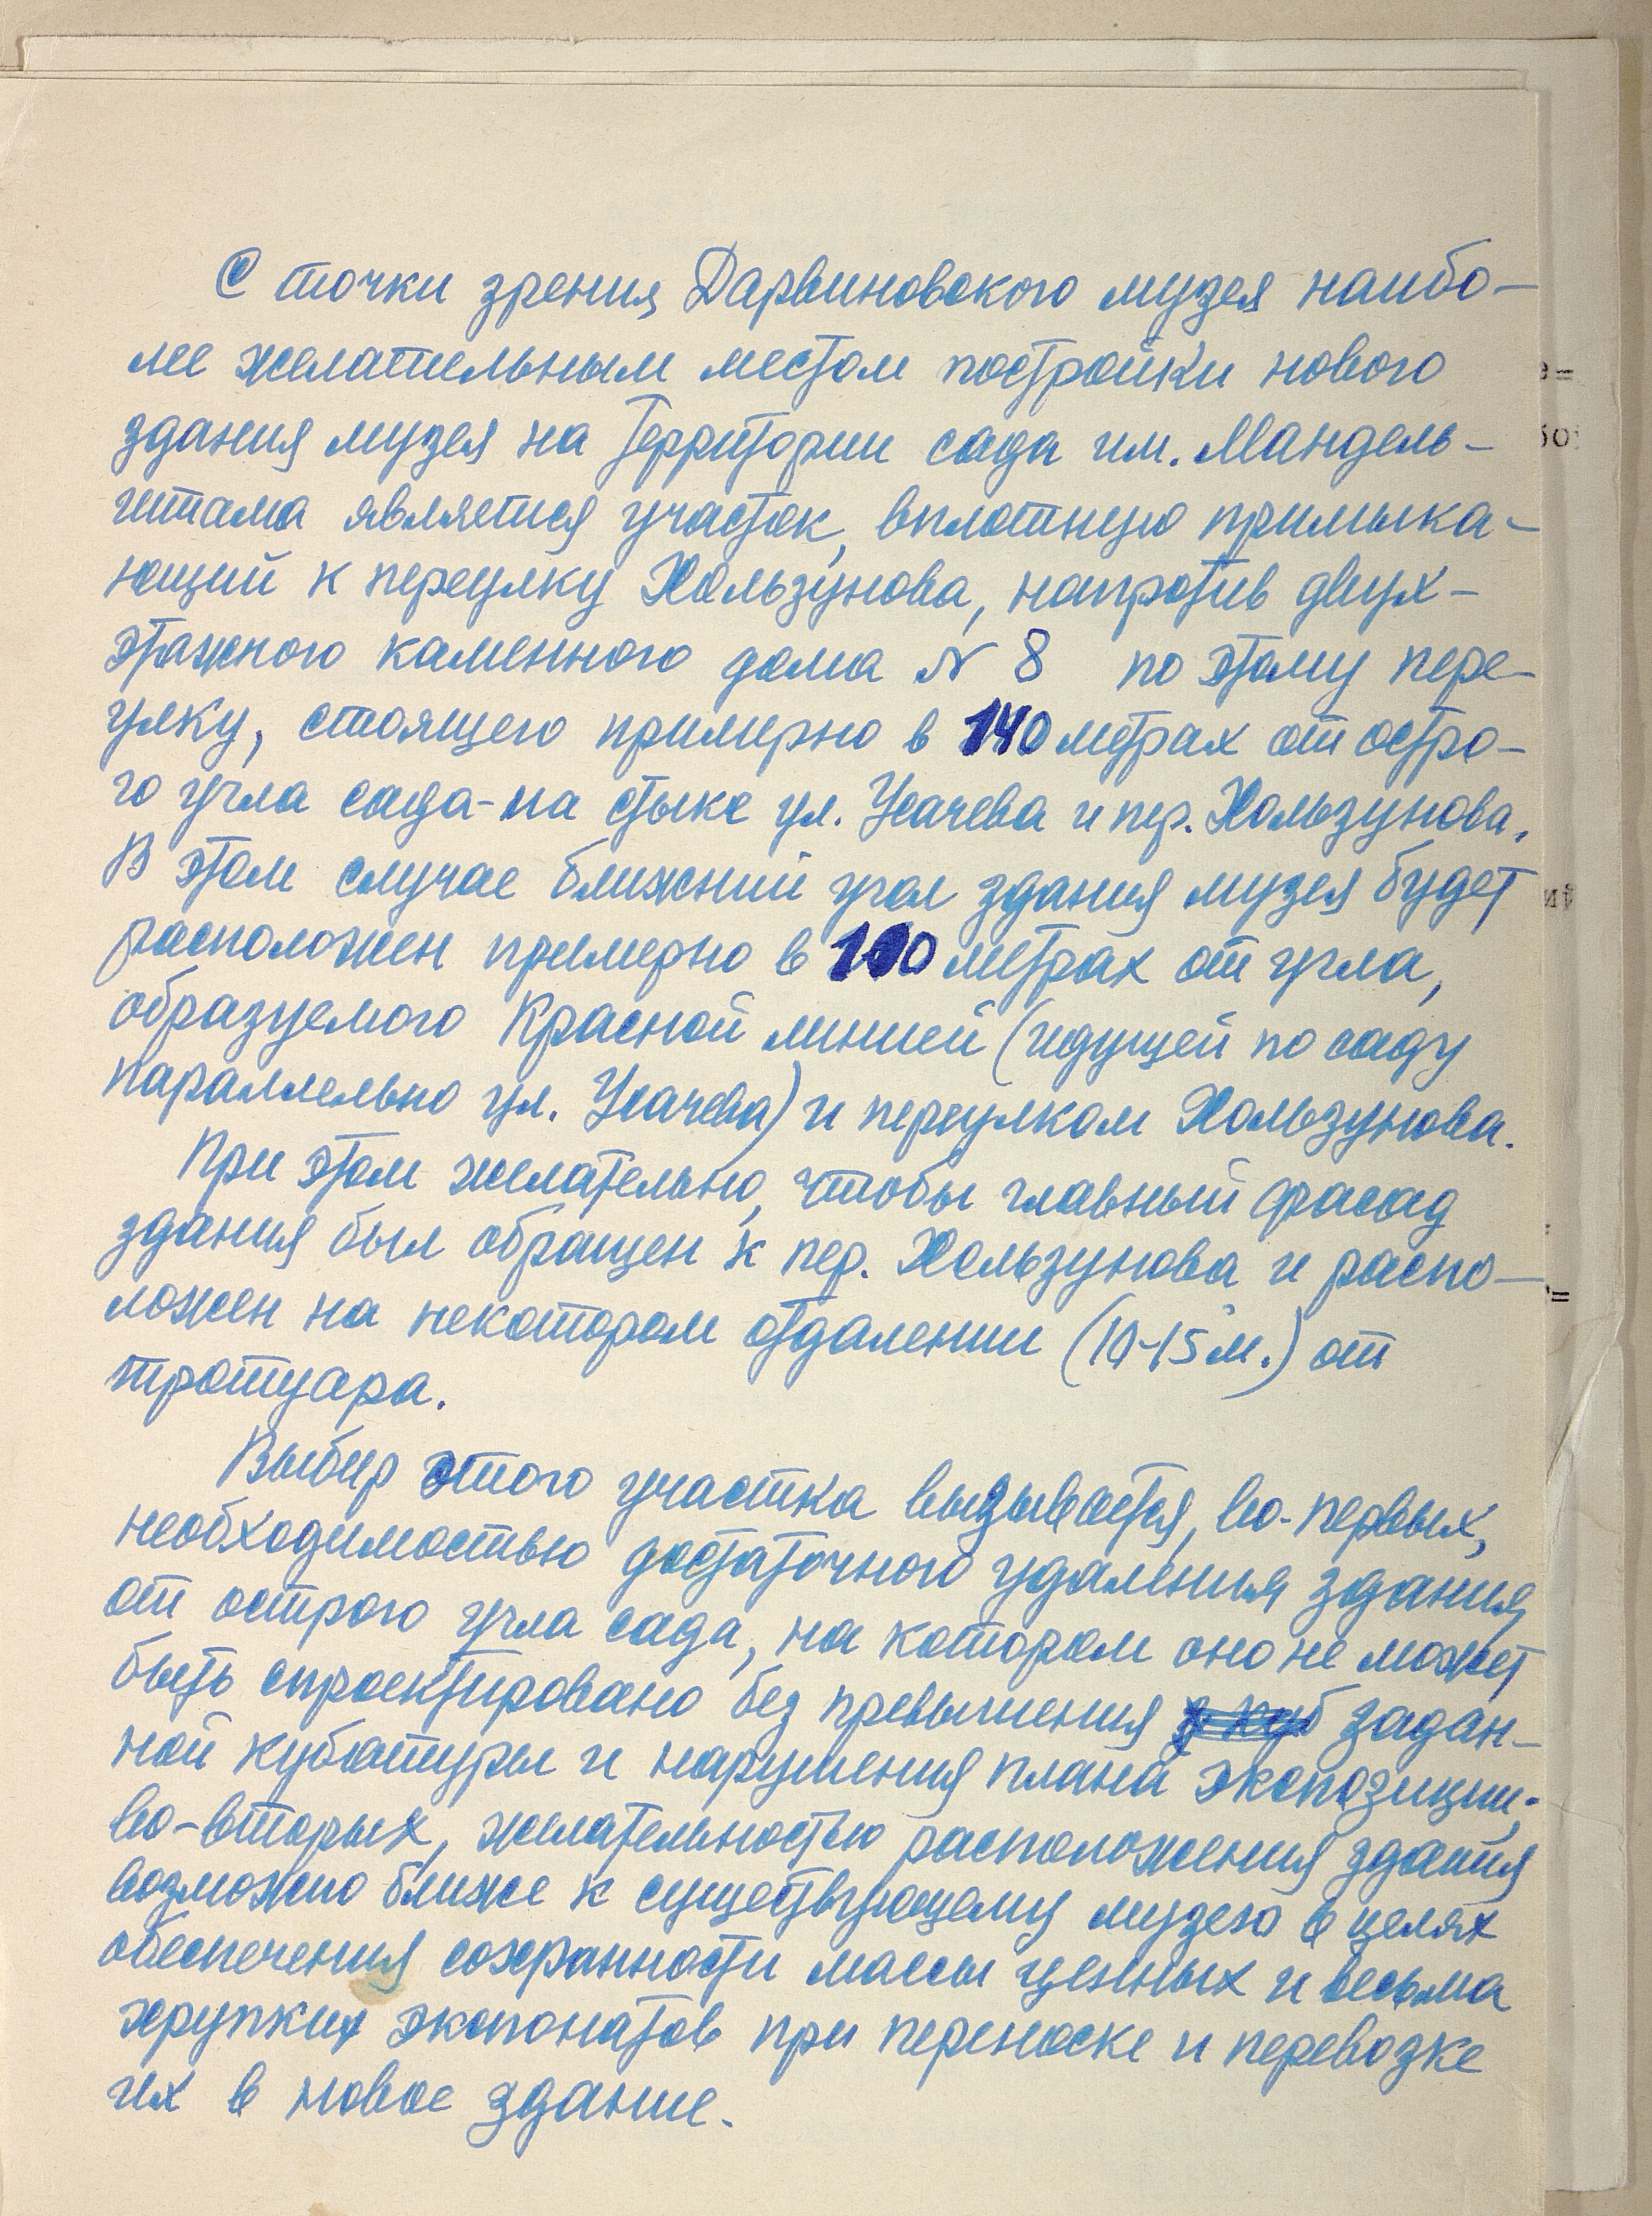 С точки зрения Дарвиновского музея наибо-
лее желательным местом постройки нового
здания музея на территории сада им. Мандель-
штама является участок, вплотную примыка-
ющий к переулку Хользунова, напротив двух-
этажного каменного дома N 8 по этому пере-
улку, стоящего примерно в 140 метрах от остро-
го угла сада-на стыке ул. Усачева и пер. Хользунова.
В этом случае ближний угол здания музея будет
расположен примерно в 100 метрах от угла,
образуемого Красной линией (идущей по саду
параллельно ул. Усачева) и переулком Хользунова.
При этом желательно, чтобы главный фасад
здания был обращен к пер. Хользунова и распо-
ложен на некотором отдалении (10-15 м.) от
тротуара.
Выбор этого участка вызывается, во-первых,
необходимостью достаточного удаления здания
от острого угла сада, на котором оно не может
быть спроектировано без превышения задан-
ной кубатуры и нарушения плана экспозиции;
во-вторых, желательностью расположения здания
возможно ближе к существующему музею в целях
обеспечения сохранности массы ценных и весьма
хрупких экспонатов при переноске и перевозке
их в новое здание.